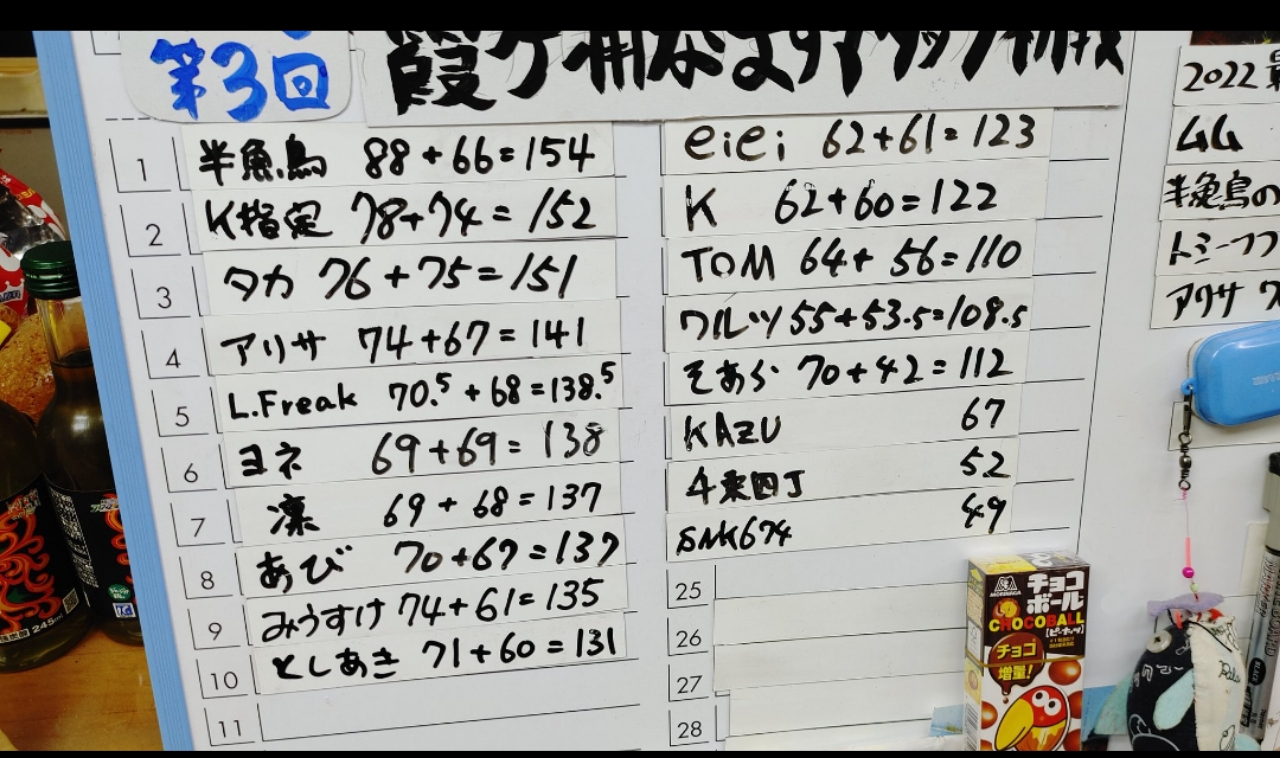 第3回
霞ヶ浦なまずマダラ
1 半魚鳥 88+66=154
2 K指定 78+74=152
3 タカ 76+75=151
4 アリサ 74+67=141
5 L.Freak 70.5+68=138.5
6 ヨネ 69+69=138
7 凛 69+68=137
8 あび 70+67=137
9 みうすけ 74+61=135
10 としあき 71+60=131
11
eiei 62+61=123
K 62+60=122
TOM 64+56=110
ワルツ 55+53.5=108.5
そあら 70+42=112
KAZU 67
4来四丁 52
SNK674 49
25
26
27
28
2022
ムム
半魚鳥の
トミーフフ
アリサ
MORINAGA
チョコボール
CHOCOBALL
[ピーナッツ]
チョコ
増量!
245ml